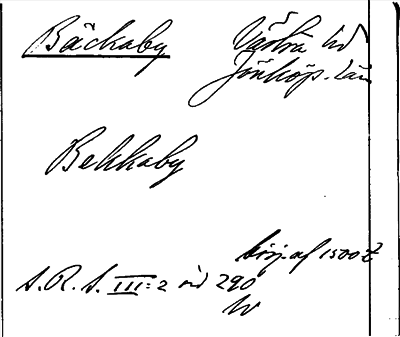 Bäckaby Västra hd
Jönköp. län
Bekkaby
börj. af 1500 t
S. R. S. III:2 sid 290